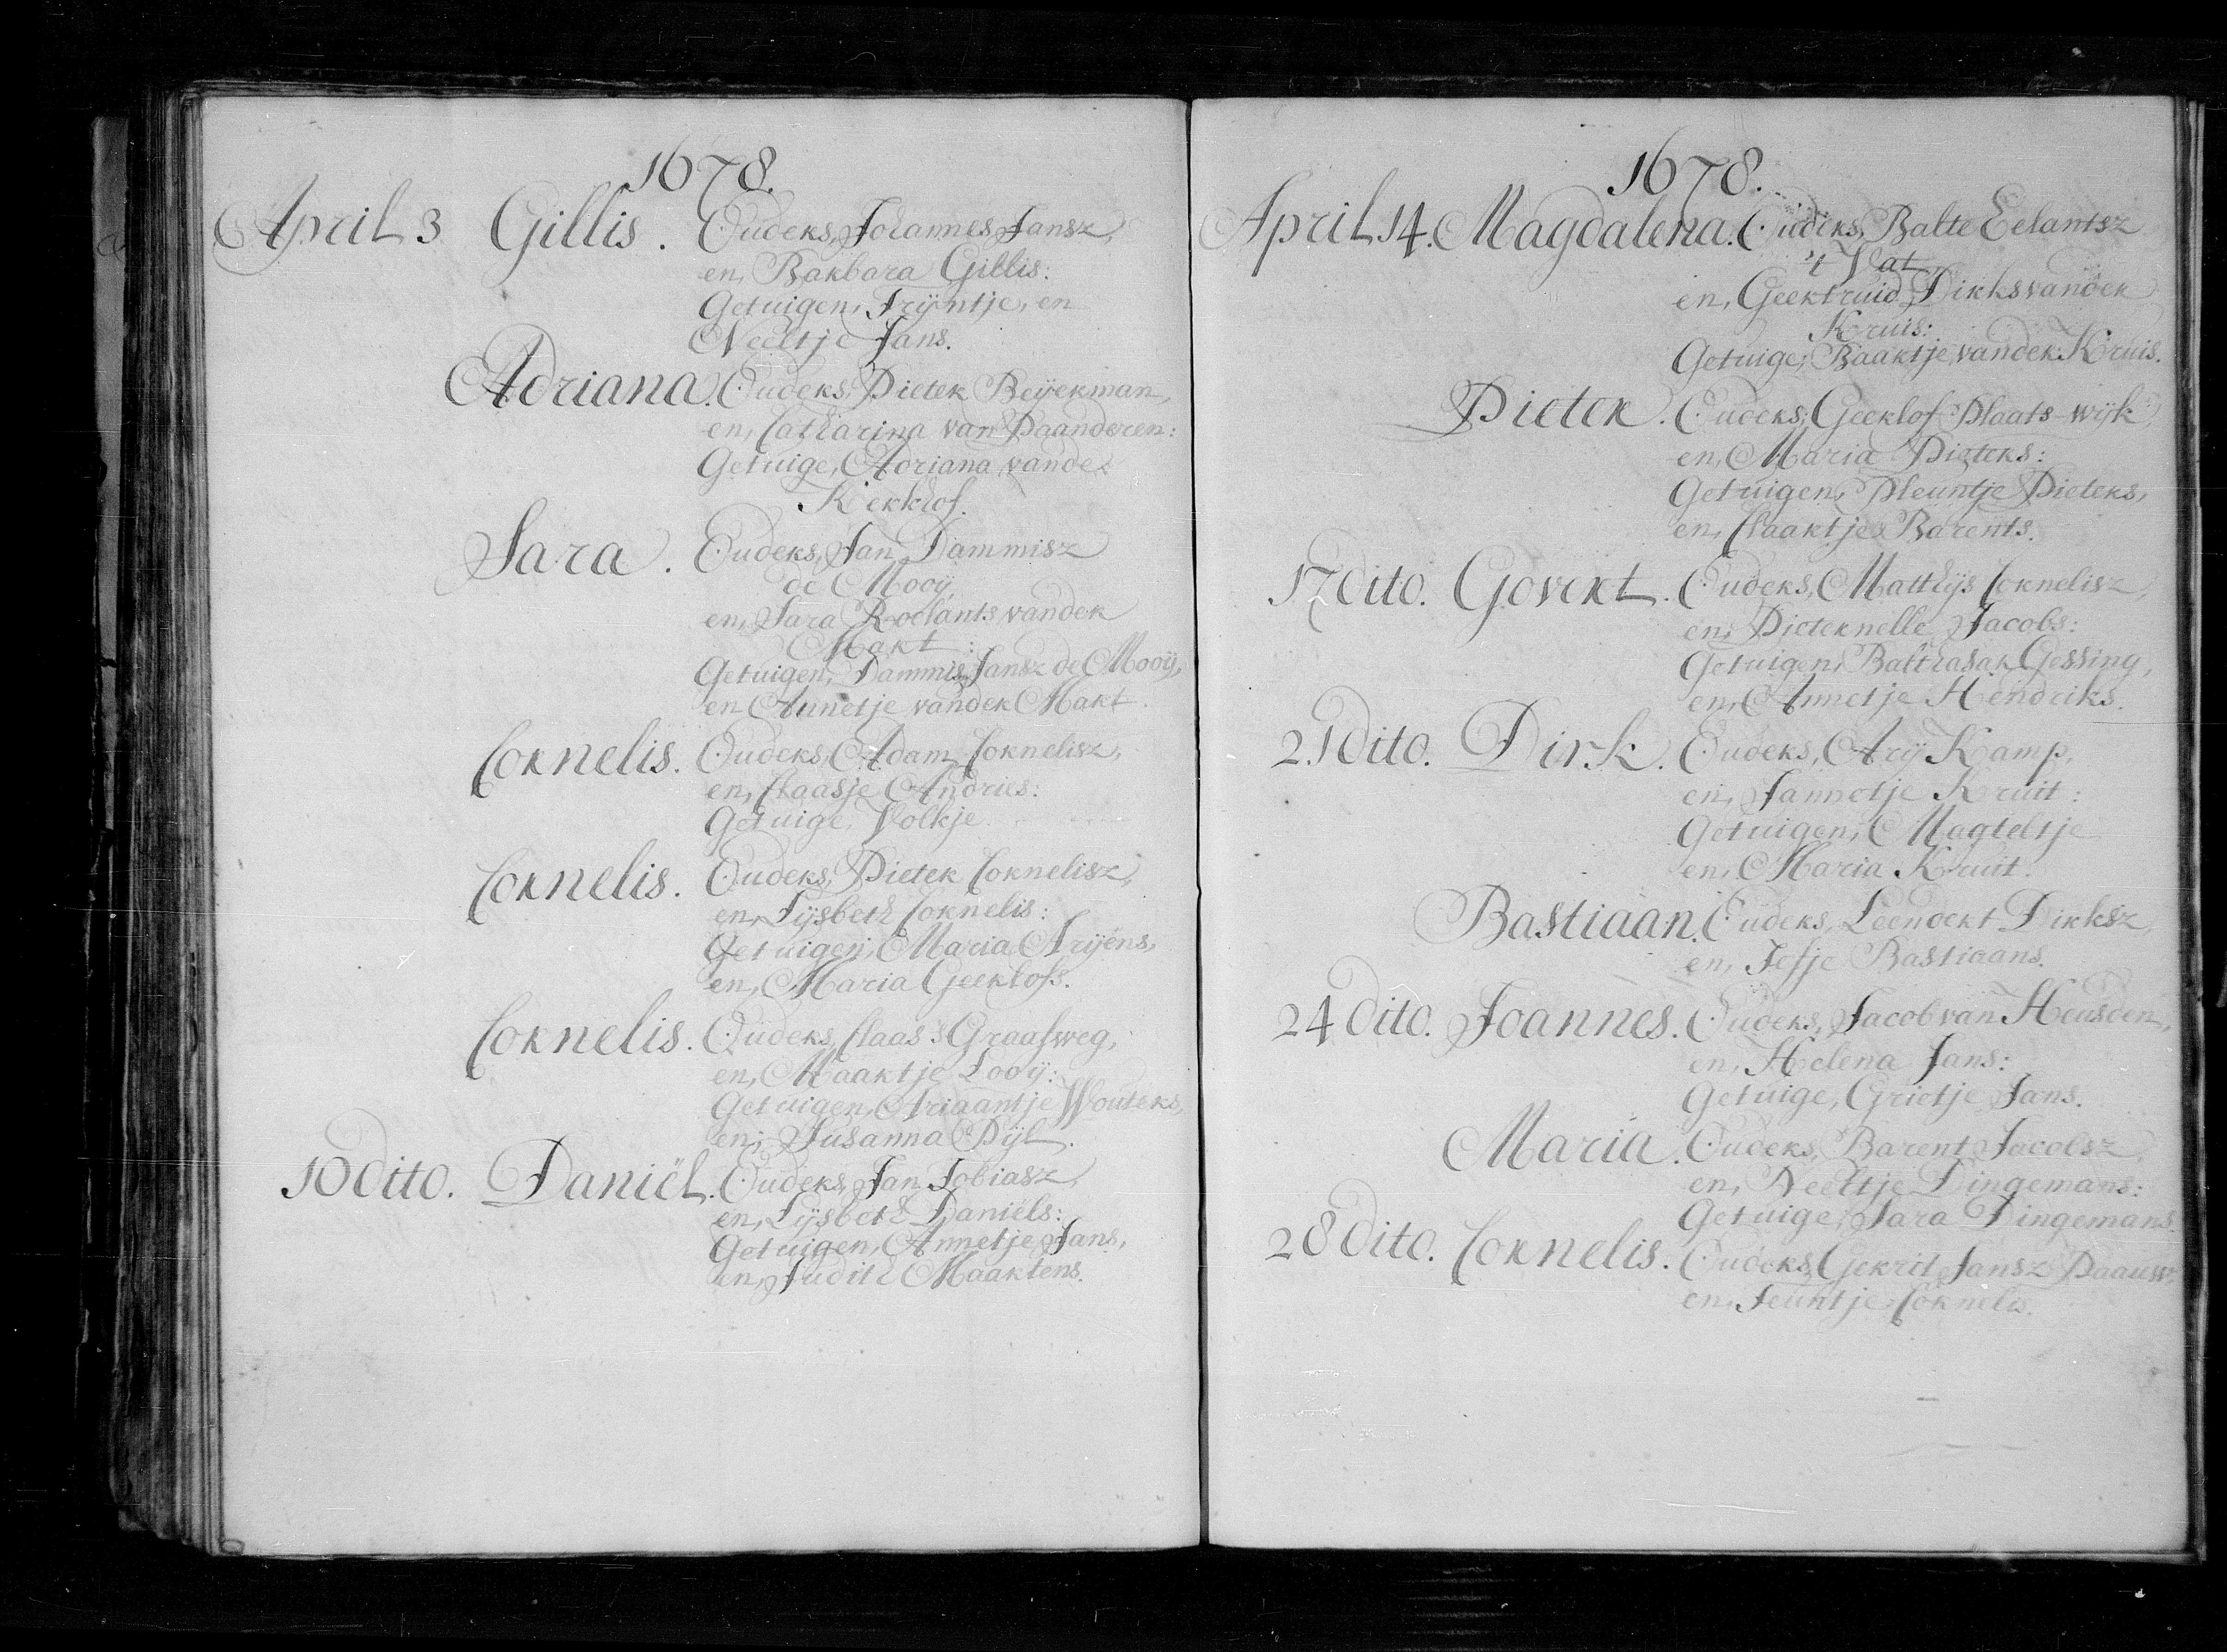 1678.
April 3 Gillis. Ouders, Johannes Jansz,
en, Barbara Gillis:
Getuigen, Trijntje, en
Neeltje Jans.
Adriana. Ouders, Pieter Beijerman,
en, Catharina van Paanderen:
Getuige, Adriana vande
Kerkhof.
Sara. Ouders, Jan Dammisz
de Mooij,
en, Sara Roelants vander
Mart:
Getuigen, Dammis Jansz de Mooij,
en Annetje vander Mart.
Cornelis. Ouders, Adam Cornelisz,
en, Claasje Andries:
Getuige, Volkje
Cornelis. Ouders, Pieter Cornelisz,
en, Lijsbeth Cornelis:
Getuigen, Maria Arijens,
en, Maria Geerlofs.
Cornelis. Ouders, Claas 's Graafweg,
en, Maartje Looij:
Getuigen, Ariaantje Wouters,
en, Susanna Pijl.
10 dito. Daniël. Ouders, Jan Tobiasz,
en, Lijsbeth Daniëls:
Getuigen, Annetje Jans,
en, Judith Maartens.
1678.
April 14. Magdalena. Ouders, Balte Eelantsz
't Vat
en, Geertruid Dirks vander
Kruis:
Getuige, Baartje vander Kruis.
Pieter. Ouders, Geerlof Plaats-wijk,
en, Maria Pieters:
Getuigen, Pleuntje Pieters,
en, Claartje Barents.
17 dito. Govert. Ouders, Matthijs Cornelisz,
en, Pieternelle Jacobs:
Getuigen, Balthasar Gessing,
en, Annetje Hendriks.
21 dito. Dirk. Ouders, Arij Kamp,
en, Jannetje Kruit:
Getuigen, Magteltje
en, Maria Kruit.
Bastiaan. Ouders, Leendert Dirksz,
en, Jefje Bastiaans.
24 dito. Joannes. Ouders, Jacob van Heusden,
en, Helena Jans:
Getuige, Grietje Jans.
Maria. Ouders, Barent Jacobsz,
en, Neeltje Dingemans:
Getuige, Sara Dingemans.
28 dito. Cornelis. Ouders, Gerrit Jansz Paauw,
en, Teuntje Cornelis.